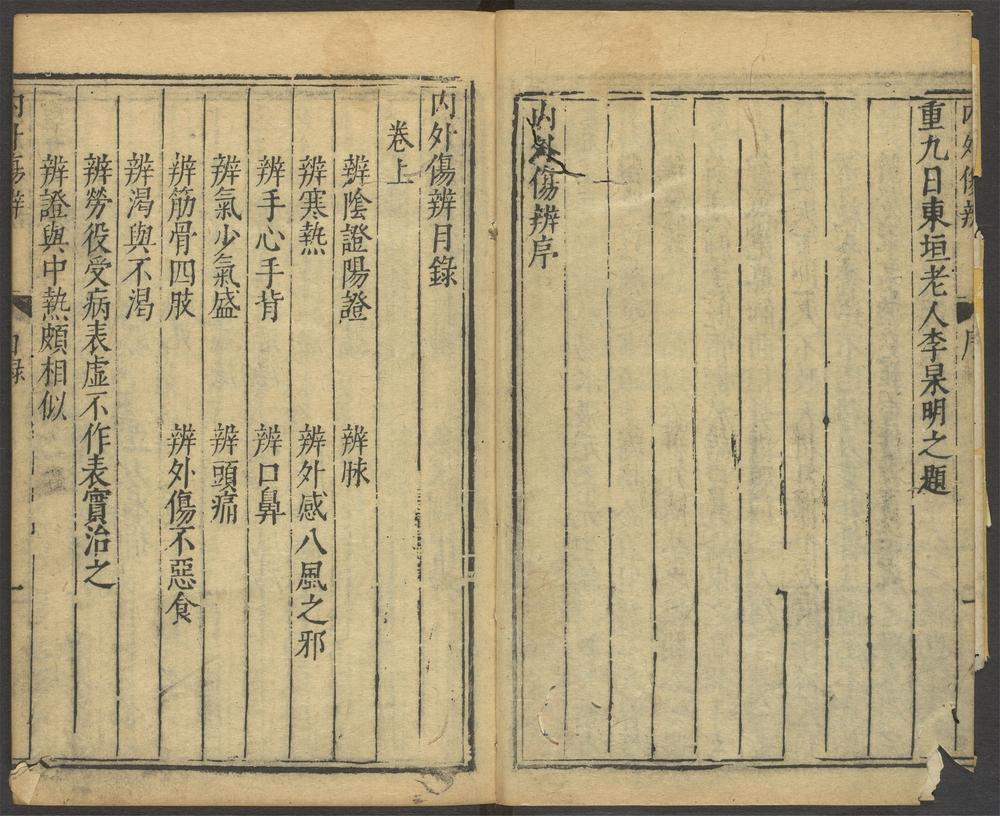 內外傷辨 序 一
重九日東垣老人李杲明之題
內外傷辨序
內外傷辨目錄
卷上
辨陰證陽證 辨脉
辨寒熱 辨外感八風之邪
辨手心手背 辨口鼻
辨氣少氣盛 辨頭痛
辨筋骨四肢 辨外傷不惡食
辨渴與不渴
辨勞役受病表虛不作表實治之
辨證與中熱頗相似
內外傷辨 目錄 一